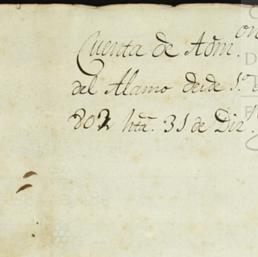 on
Cuenta de Adm.
del Alamo desde 1.º
802 hta. 31 de Dic.